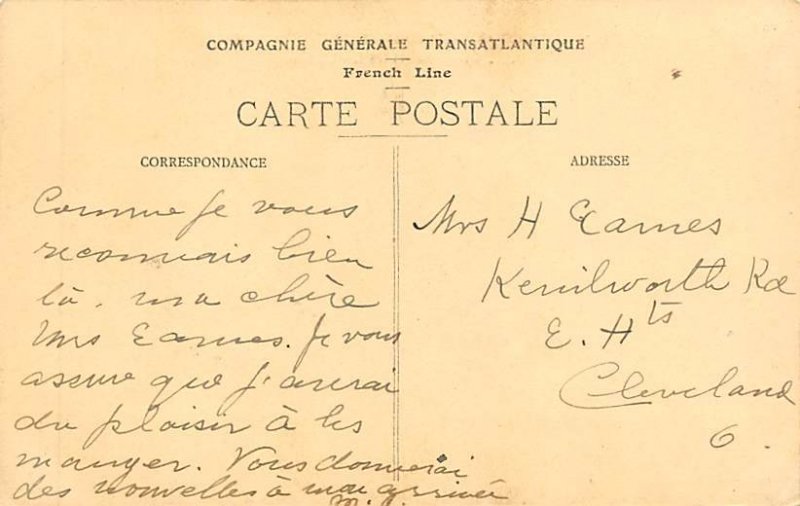 COMPAGNIE GÉNÉRALE TRANSATLANTIQUE
French Line
CARTE POSTALE
CORRESPONDANCE
ADRESSE
Comme je vous
reconnais bien
là, ma chère
Mrs Eames. Je vous
assure que j'aurai
du plaisir à les
manger. Vous donnerai
des nouvelles à mon arrivée
M.
Mrs H Eames
Kenilworth Rd
E. Hts
Cleveland
O.